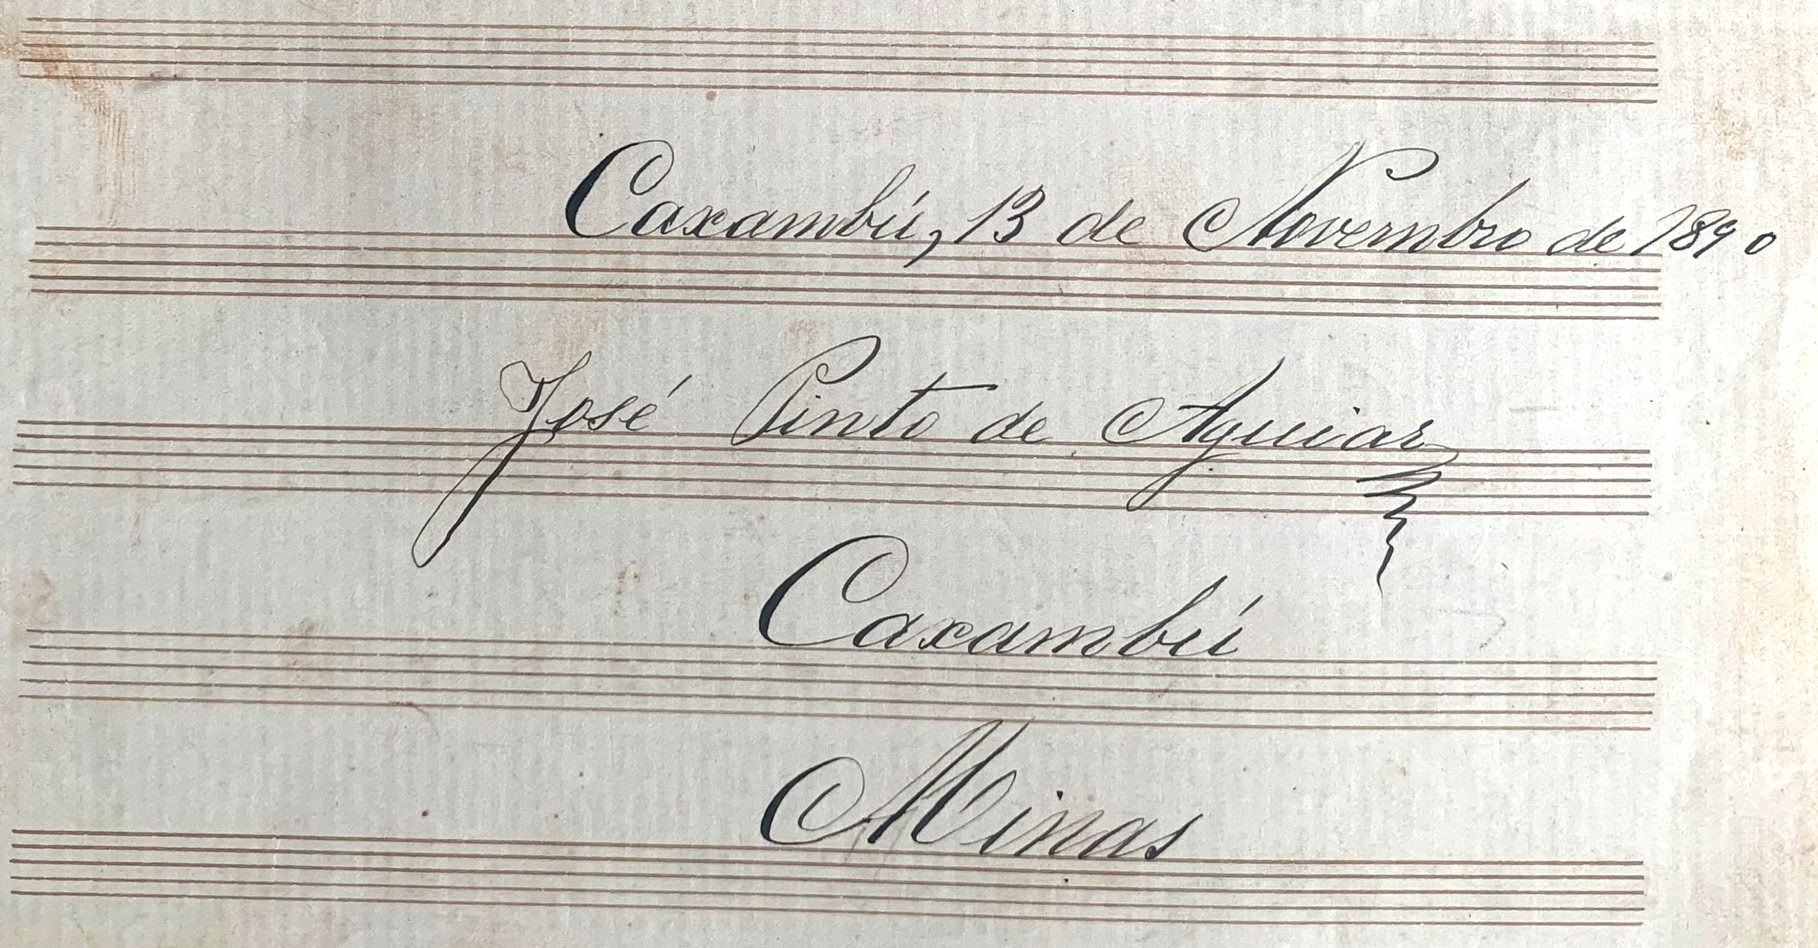 Caxambú, 13 de Novembro de 1890
José Pinto de Aguiar
Caxambú
Minas